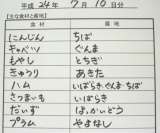 平成 24年 7月 10日分
【主な食材と産地】
食材 産地
にんじん ちば
キャベツ ぐんま
もやし とちぎ
きゅうり あきた
ハム いばらき ぐんま ちば
さつまいも いばらき
だいず ほっかいどう
プラム やまなし